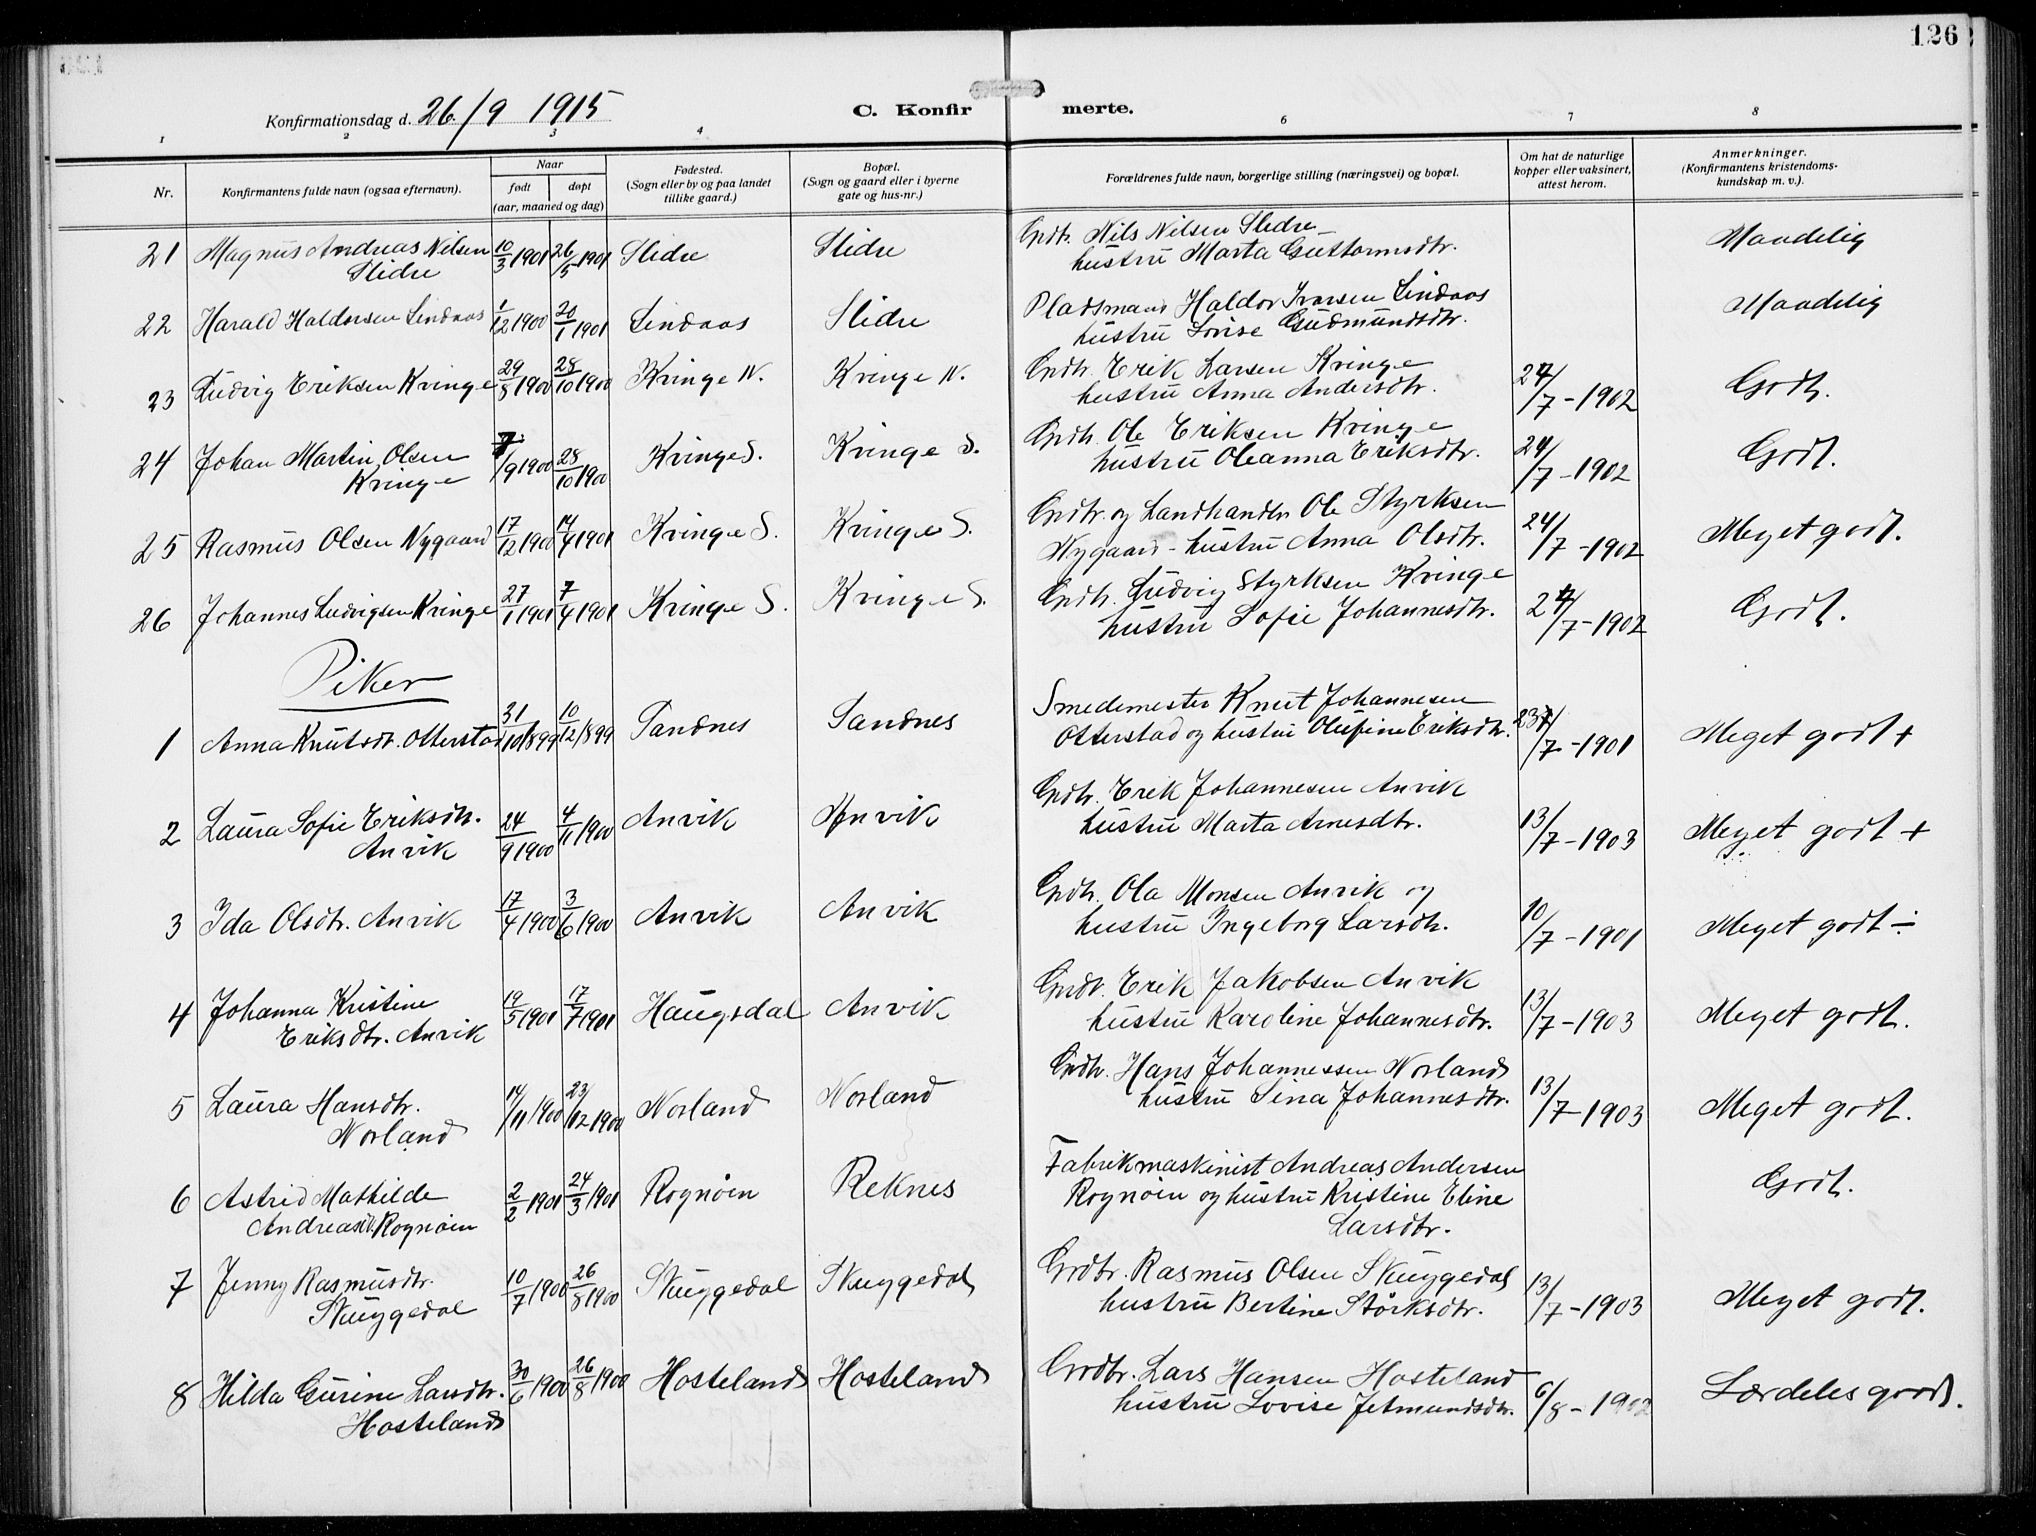 126
Konfirmationsdag d. 26/9 1915
C. Konfirmerte.
1 2 3 4 6 7 8
Nr.
Konfirmantens fulde navn (ogsaa efternavn).
Naar
født døpt
(aar, maaned og dag)
Fødested.
(Sogn eller by og paa landet
tillike gaard.)
Bopæl.
(Sogn og gaard eller i byerne
gate og hus-nr.)
Forældrenes fulde navn, borgerlige stilling (næringsvei) og bopæl.
Om hat de naturlige
kopper eller vaksinert,
attest herom.
Anmerkninger.
(Konfirmantens kristendoms-
kundskap m. v.).
21 Magnus Andreas Nilsen 10/3 1901 26/5 1901 Slidre Slidre Grdbr. Nils Nilsen Slidre Maadelig
Slidre hustru Marta Guttormsdtr.
22 Harald Haldorsen Lindaas 1/12 1900 20/1 1901 Lindaas Slidre Pladsmand Haldor Ivarsen Lindaas Maadelig
hustru Lovise Gudmundsdtr.
23 Ludvig Eriksen Kringe 29/8 1900 28/10 1900 Kringe N. Kringe N. Grdbr. Erik Larsen Kringe 24/7-1902 Godt.
hustru Anna Andersdtr.
24 Johan Martin Olsen 7/9 1900 28/10 1900 Kringe S. Kringe S. Grdbr. Ole Eriksen Kringe 24/7-1902 Godt.
Kringe hustru Oleanna Eriksdtr.
25 Rasmus Olsen Nygaard 17/12 1900 14/4 1901 Kringe S. Kringe S. Grdbr. og Landhandler Ole Styrksen 24/7-1902 Meget godt.
Nygaard - hustru Anna Olsdtr.
26 Johannes Ludvigsen Kringe 27/1 1901 7/4 1901 Kringe S. Kringe S. Grdbr. Ludvig Styrksen Kringe 24/7-1902 Godt.
hustru Sofie Johannesdtr.
Piker
1 Anna Knutsdtr. Otterstad 31/10 1899 10/12 1899 Sandnes Sandnes Smedemester Knut Johannesen 23/7-1901 Meget godt +
Otterstad og hustru Olufine Eriksdtr.
2 Laura Sofie Eriksdtr. 24/9 1900 4/11 1900 Anvik Anvik Grdbr. Erik Johannesen Anvik 13/7-1903 Meget godt +
Anvik hustru Marta Arnesdtr.
3 Ida Olsdtr. Anvik 17/4 1900 3/6 1900 Anvik Anvik Grdbr. Ola Monsen Anvik og 10/7-1901 Meget godt ÷
hustru Ingeborg Larsdtr.
4 Johanna Kristine 19/5 1901 17/7 1901 Haugsdal Anvik Grdbr. Erik Jakobsen Anvik 13/7-1903 Meget godt.
Eriksdtr. Anvik hustru Karoline Johannesdtr.
5 Laura Hansdtr. 14/11 1900 23/12 1900 Norland Norland Grdbr. Hans Johannessen Norland 13/7-1903 Meget godt.
Norland hustru Sina Johannesdtr.
6 Astrid Mathilde 2/2 1901 24/3 1901 Rognøien Reknes Fabrikmaskinist Andreas Andersen Godt.
Andreasdtr. Rognøien Rognøien og hustru Kristine Eline
Larsdtr.
7 Jenny Rasmusdtr. 10/7 1900 26/8 1900 Skuggedal Skuggedal Grdbr. Rasmus Olsen Skuggedal 13/7-1903 Meget godt.
Skuggedal hustru Bertine Størksdtr.
8 Hilda Gurine Larsdtr. 30/6 1900 26/8 1900 Hosteland Hosteland Grdbr. Lars Hansen Hosteland 6/8-1902 Særdeles godt.
Hosteland hustru Lovise Jetmundsdtr.